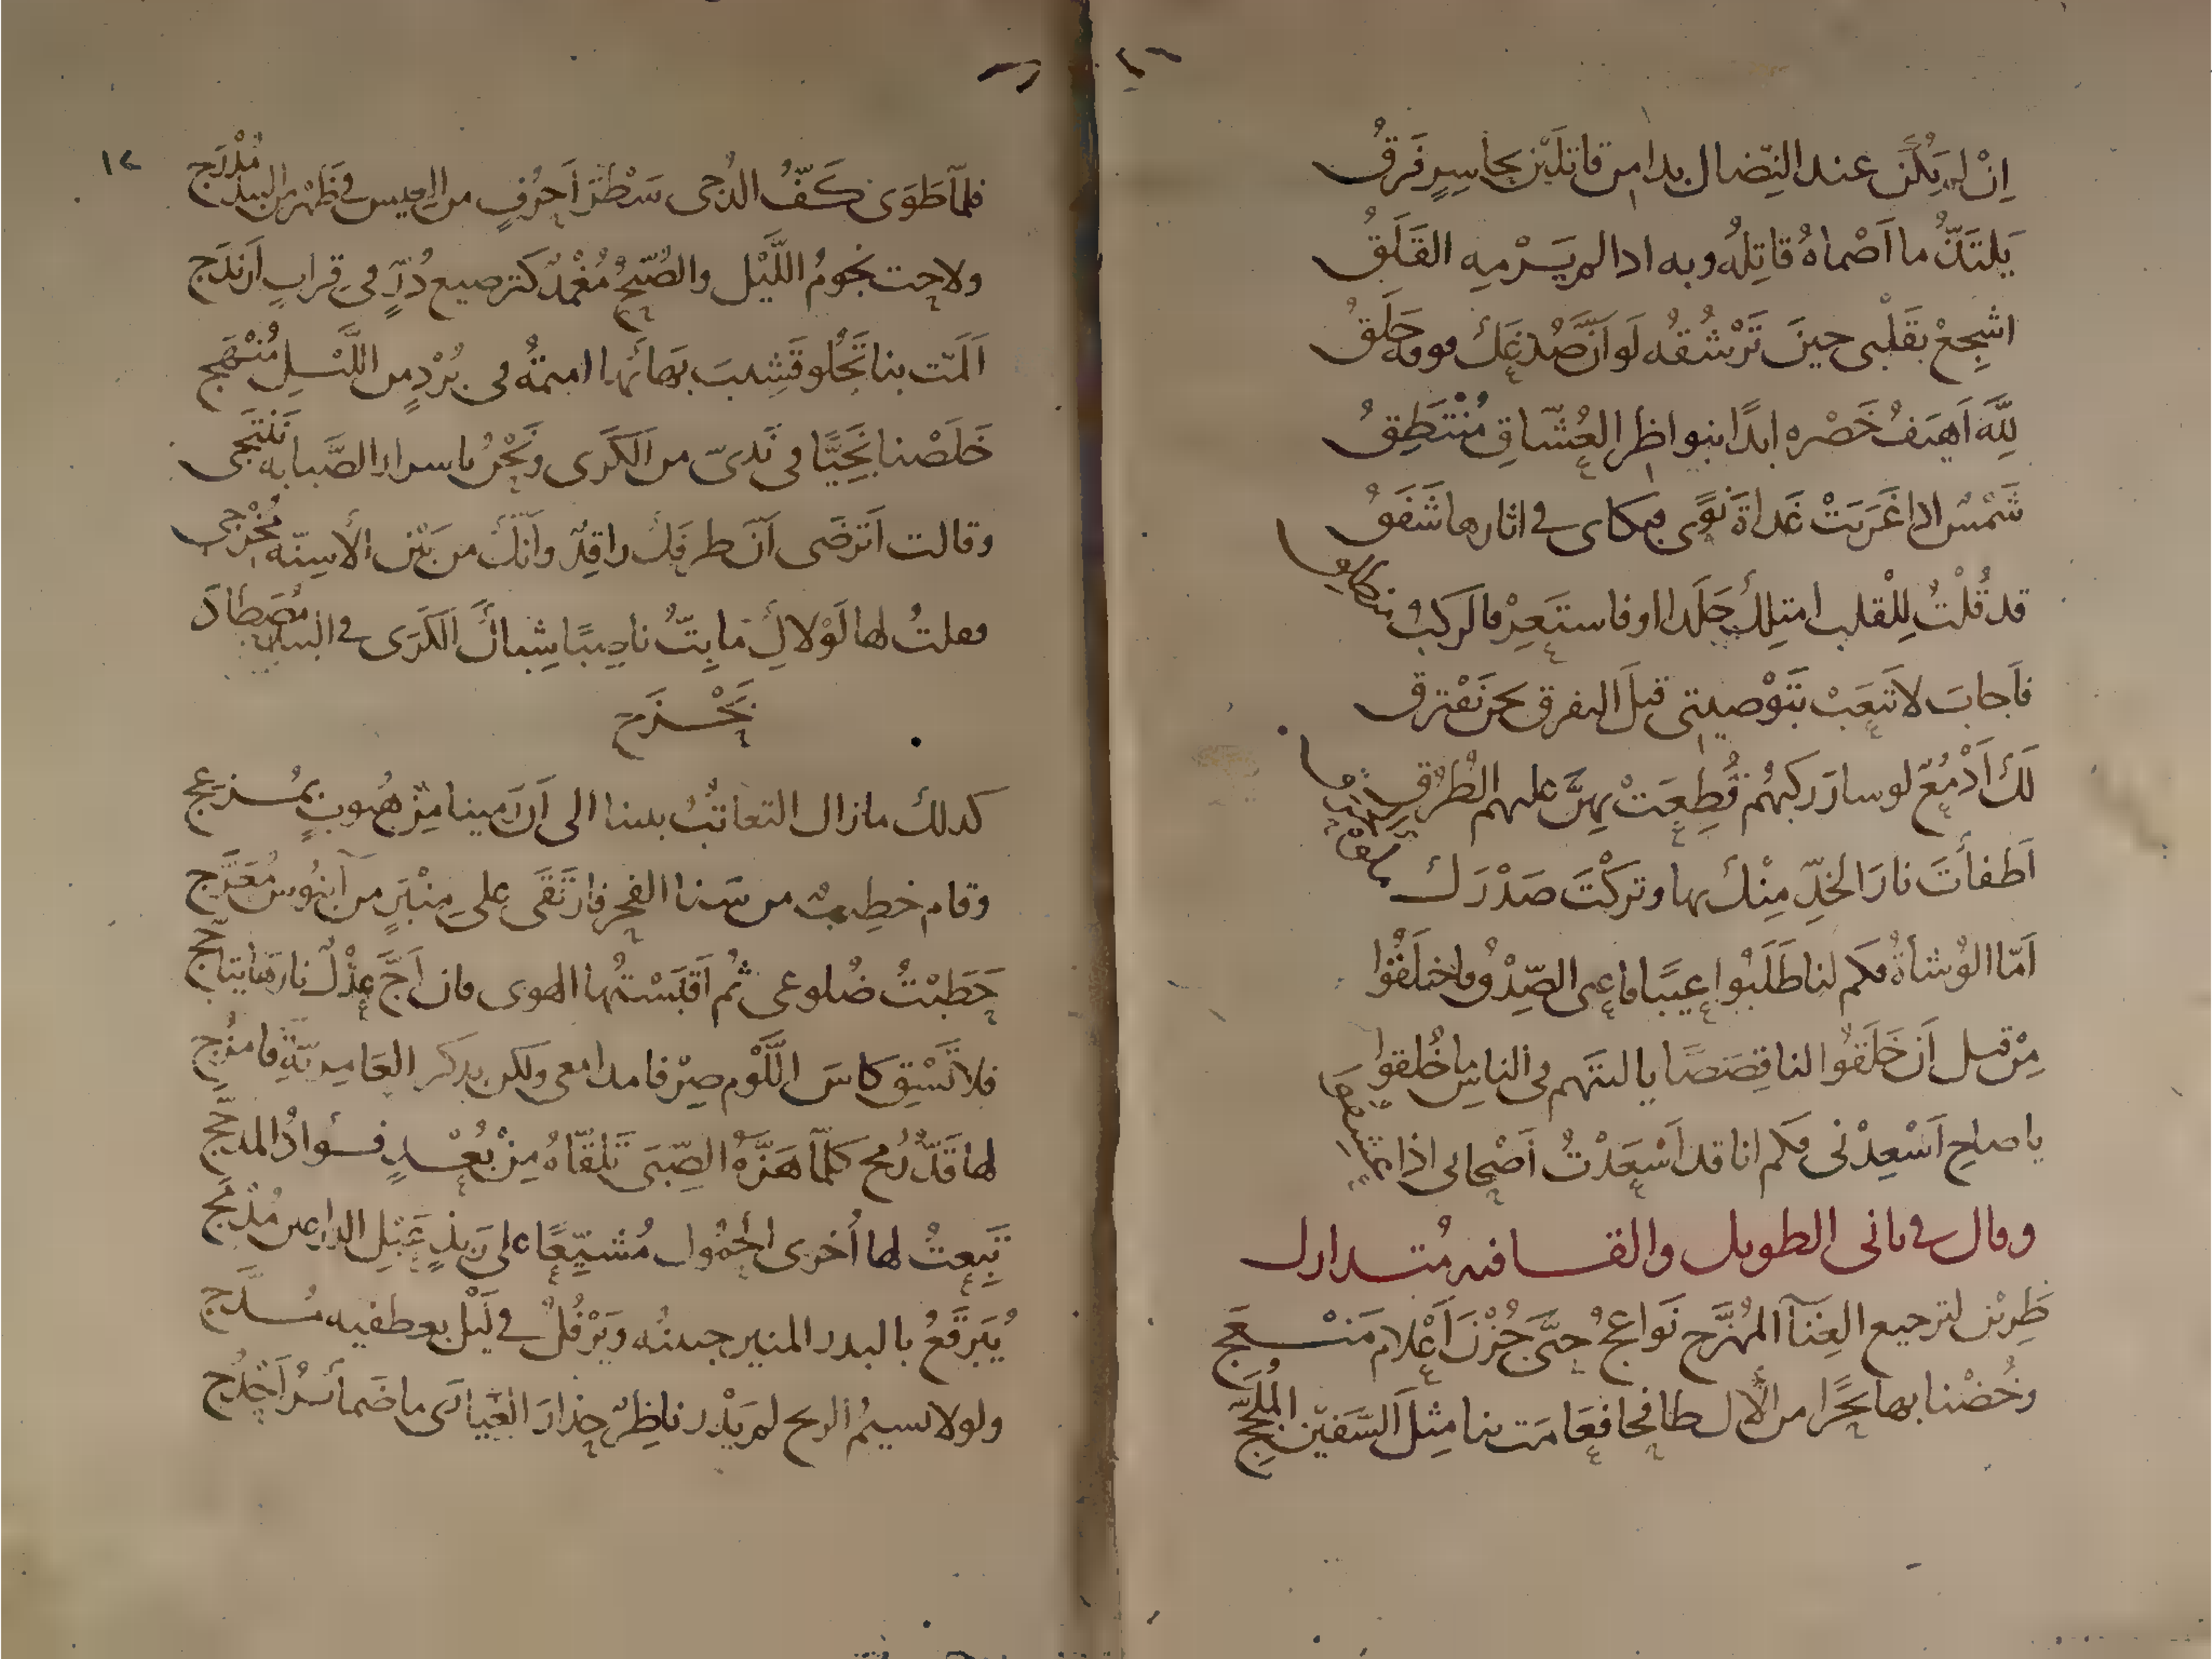 اِنْ لم يكُن عند النِّضال بدا من قاتلَيْن بجاسِرٍ فَرَقُ
يَلتَذُّ ما اَصْماهُ قاتِلُه وبه ادا لم يَرْمِه القَلَقُ
اشجِعْ بقَلْبى حينَ تَرْشُقُه لَو اَنَّ صُدغَكَ فوقه حَلَقُ
لِلَّه اَهيَفُ خَصْره ابدًا بنواظر العُشّاقِ مُنْتَطِقُ
شَمْسٌ اذا غَرَبَتْ غَداةَ نَوًى فبكاى فى اثارها شَفَقُ
قد قُلْتُ لِلْقلب امتلِكْ جَلَدا او فاستَعِرْ فالركبُ منطلق
فاَجابَ لا تَتعَبْ بتَوْصيتى قبلَ التفرق نحن نَفْترق
لَكَ اَدْمُعٌ لو سارَ ركبهُم قُطِعَتْ بهِنَّ عليهم الطُرُق
اَطفأتَ نارَ الخدِّ مِنْك بها وتركْتَ صَدْرَك
اَمّا الوُشاةُ فكم لنا طَلَبُوا عيبًا فاعيى الصِّدْقُ فاختلَقُوا
مِنْ قبل اَن خَلَقُوا لنا قِصَصًا يا ليتَهم فى الناسِ ما خُلقوا
يا صاحِ اَسْعِدْنى فكم انا قد اَسْعَدْتُ اَصْحابى اذا عشِقوا
وقال فى ثانى الطويل والقافيه مُتدارك
طَرِبْن لترجيع الغِنَآ المُهَزَّج نَواعجُ حتَّى جُزْنَ اَعْلامَ مَنْعَج
وخُضْنا بها بحرًا من الآل طافحا فعَامَت بنا مِثلَ السَّفين المُلَجِّج
١٢
فلمّا طَوَى كَفُّ الدُجى سَطْرَ اَحرُفٍ من العيس فى ظَهْر من البيد مُدْرَج
ولاحت نجومُ اللَّيْل والصُبحُ مُغْمَدٌ كترصيع دُرٍّ فى قِرابِ اَرَندَج
اَلَمّت بنا تَجْلُو قَشِيبَ بَهائِها امَيمَةُ فى بُرْدٍ من اللَّيْل مُنْهَج
خَلَصْنا نَجِيًّا فى نَدىّ من الكَرَى ونَحْنُ باسرار الصَّبابه نَنْتَجى
وقالت اَتَرضَى اَنّ طرفَك راقِدٌ واَنّك من بَيْن الأسِنّه مُخْرجى
فقلتُ لها لَوْلاكِ ما بِتُّ ناصِبًا شِباكَ الكَرَى فى البيد مُصطادَ
بَحْزَج
كدلك مازال التعاتُبُ بيننا الى اَن رَمينا مِنْ هُبوبٍ بمُزعِج
وقام خطيبٌ من سَنا الفجر فارتَقَى على مِنْبَرٍ من آبنُوس مُعَرَّج
حَطَبْتُ ضُلوعى ثُم اَقبَسْتُها الهوى فان اَجَّ عذْلٌ نارَها يتاَجَّج
فلا تَسْقِ كاسَ اللَّوْم صِرْفا مدامعى ولكن بدكر العَامِريّةِ فامزُج
لها قَدُّ رُمح كلّما هَزَّهُ الصِّبَى تَلَقّاهُ مِنْ بُعْدٍ فؤادُ المدَجَّج
تَبِعتُ لها اُخرى الحُمُول مُشيّعًا على رَبِذٍ عَبْلِ الدراعين مُدْمَج
يُبَرقَعُ بالبدر المنير جبينُه ويَرْفُلُ فى لَيْل بعطفيه مُسدَّج
ولولا نسيمُ الريح لم يَدْر ناظِرٌ حِذارَ الغَيارَى ما ضَمائرُ اَحْدُج